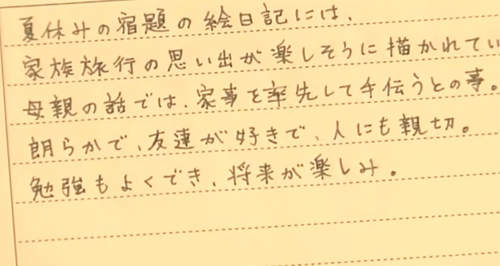 夏休みの宿題の絵日記には、
家族旅行の思い出が楽しそうに描かれてい
母親の話では、家事を率先して手伝うとの事。
朗らかで、友達が好きで、人にも親切。
勉強もよくでき、将来が楽しみ。